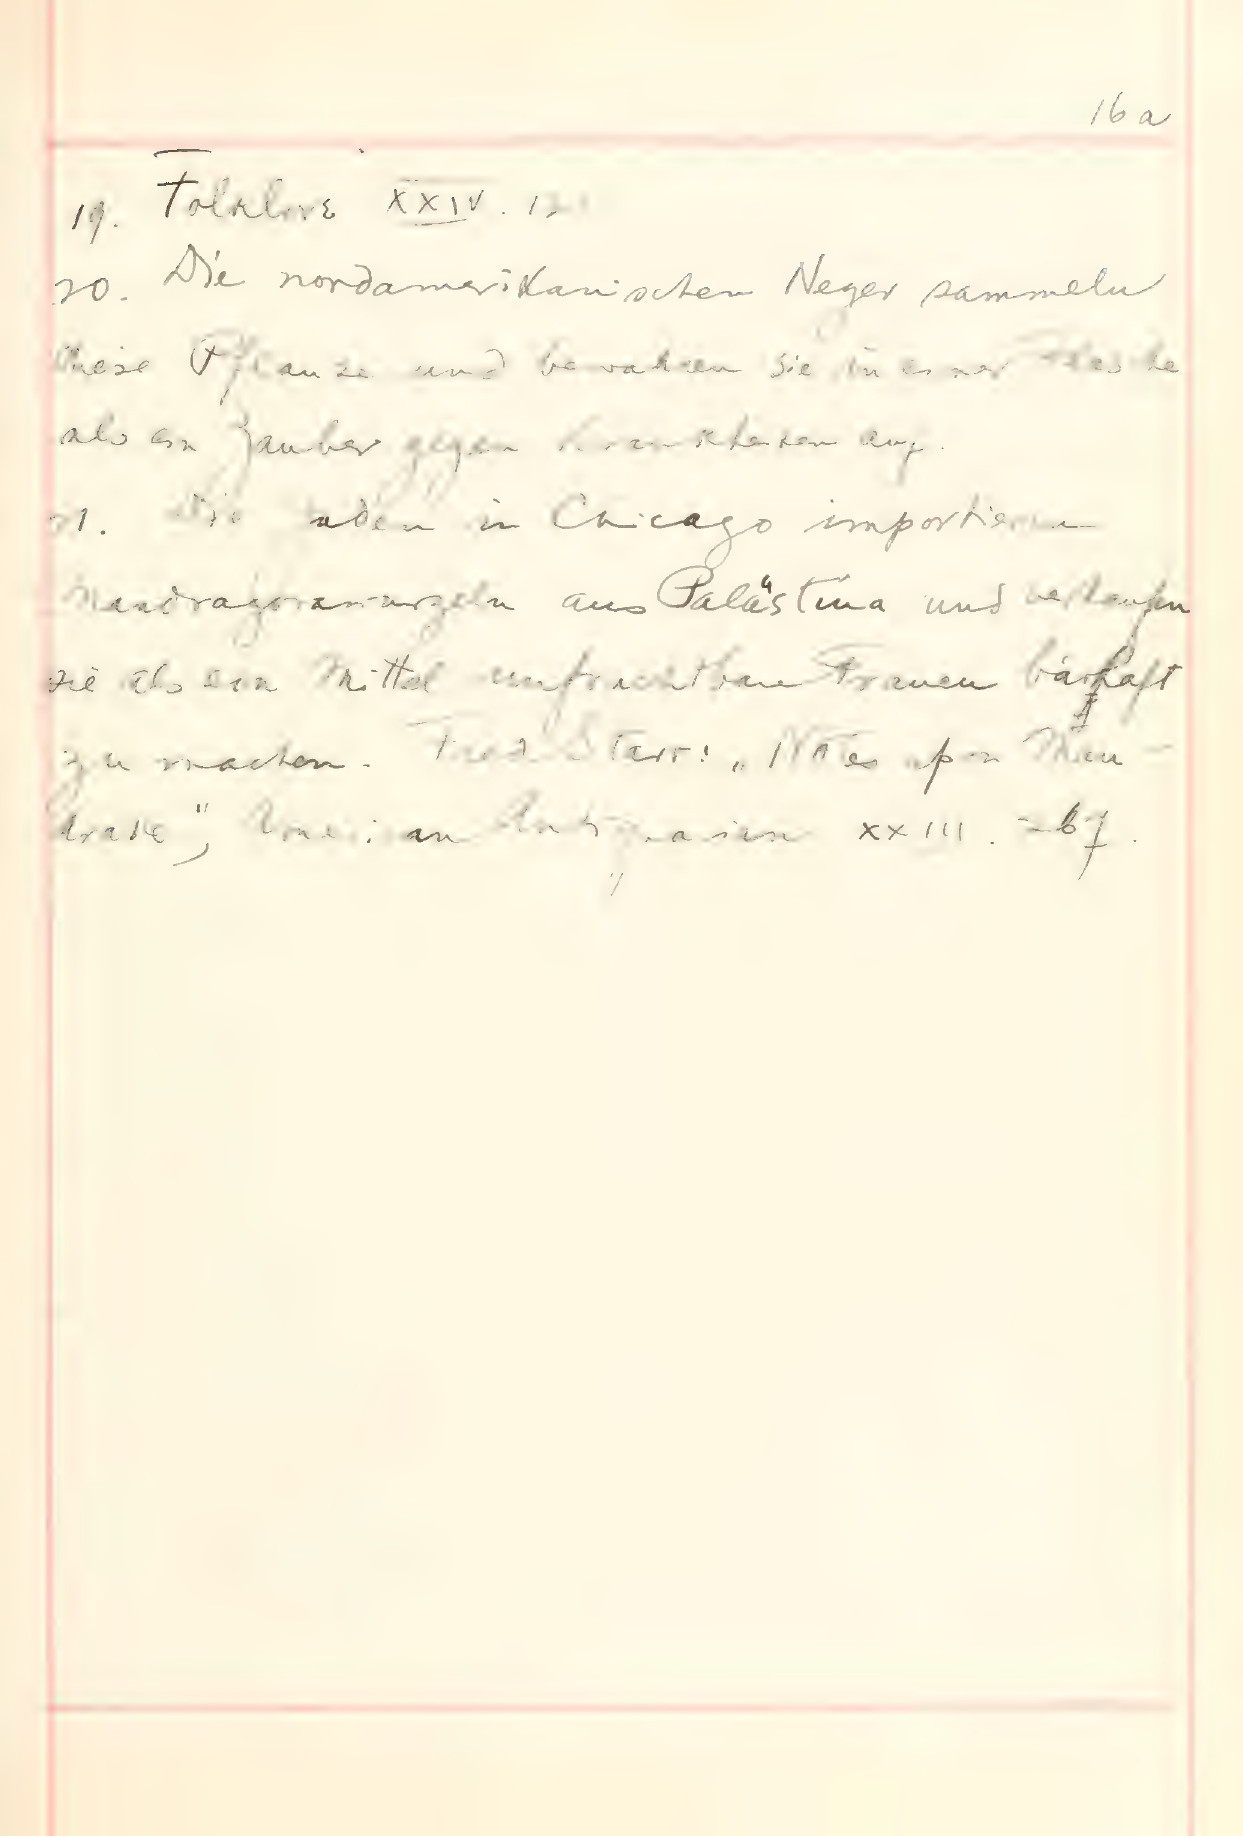 16 a
19. Folklore XXIV.
20. Die nordamerikanischen Neger sammeln
diese Pflanze und bewahren sie in einer Flasche
als ein Zauber gegen Krankheiten auf.
21. Die Juden in Chicago importieren
Mandragorawurzeln aus Palästina und verkaufen
sie als ein Mittel unfruchtbare Frauen bärhaft
zu machen. Fred Starr: „Notes upon Man-
drake", American Antiquarian XXIII. 267.